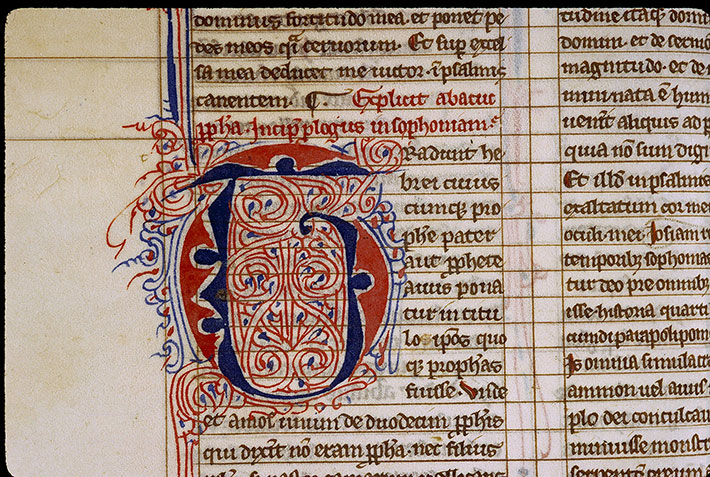 dominus fortitudo mea. et ponet pe
des meos q̃ ceruorum. Et sup excel
sa mea deducet me uictor ĩ psalmis
canentem. ¶ Explicit abacuc
ꝓpħa. Incip̃ ꝓlogus in sophoniam.
Tradunt he
brei cuius
cumqꝫ pro
pħe pater
aut ꝓpħete
auus pona
tur in titu
lo. ip̃os quo
qꝫ prophas
fuisse. Unde
et amos unum de duodecim ꝓpħis
qui dixit nõ eram ꝓpħa. nec filius
tudine itaqꝫ domi
domini. et de
magnitudo. et de
mini nata ẽ hum
uenit aliquis ad p
quia nõ sum digi
Et illđ in psalmis
exaltatum cor me
oculi mei. Iosiam
temporibꝫ sophonias
tur deo pre omnibꝫ
isse. historia quarti
cundi paralipom
is omnia simulacra
ammon uel auus
plo dei conculcau
minuisse monstr